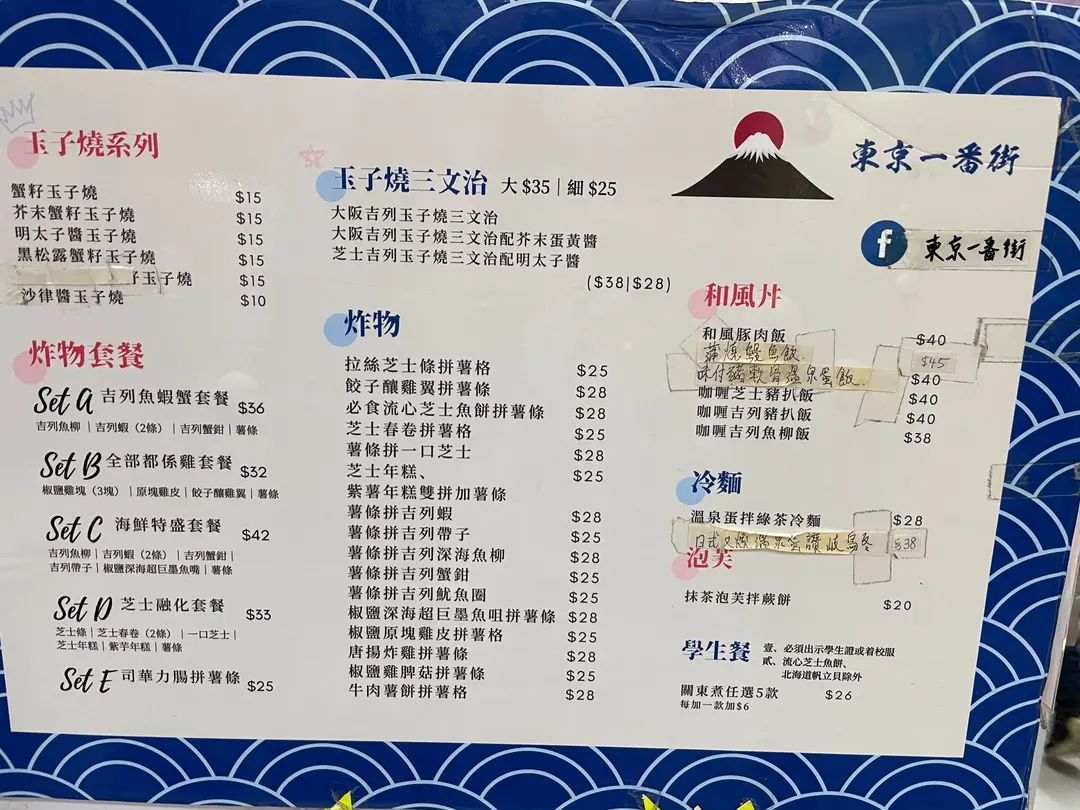 玉子燒系列
蟹籽玉子燒 $15
芥末蟹籽玉子燒 $15
明太子醬玉子燒 $15
黑松露蟹籽玉子燒 $15
玉子燒 $15
沙律醬玉子燒 $10
炸物套餐
Set A 吉列魚蝦蟹套餐 $36
吉列魚柳｜吉列蝦（2條）｜吉列蟹鉗｜薯條
Set B 全部都係雞套餐 $32
椒鹽雞塊（3塊）｜原塊雞皮｜餃子釀雞翼｜薯條
Set C 海鮮特盛套餐 $42
吉列魚柳｜吉列蝦（2條）｜吉列蟹鉗｜
吉列帶子｜椒鹽深海超巨墨魚嘴｜薯條
Set D 芝士融化套餐 $33
芝士條｜芝士春卷（2條）｜一口芝士｜
芝士年糕｜紫芋年糕｜薯條
Set E 司華力腸拼薯條 $25
玉子燒三文治 大 $35｜細 $25
大阪吉列玉子燒三文治
大阪吉列玉子燒三文治配芥末蛋黃醬
芝士吉列玉子燒三文治配明太子醬
($38|$28)
炸物
拉絲芝士條拼薯格 $25
餃子釀雞翼拼薯條 $28
必食流心芝士魚餅拼薯條 $28
芝士春卷拼薯格 $25
薯條拼一口芝士 $28
芝士年糕、 $25
紫薯年糕雙拼加薯條
薯條拼吉列蝦 $28
薯條拼吉列帶子 $25
薯條拼吉列深海魚柳 $28
薯條拼吉列蟹鉗 $25
薯條拼吉列魷魚圈 $25
椒鹽深海超巨墨魚咀拼薯條 $28
椒鹽原塊雞皮拼薯格 $25
唐揚炸雞拼薯條 $28
椒鹽雞脾菇拼薯條 $25
牛肉薯餅拼薯格 $28
東京一番街
f 東京一番街
和風丼
和風豚肉飯 $40
蒲燒鰻魚飯 $45
味付豬軟骨溫泉蛋飯 $40
咖喱芝士豬扒飯 $40
咖喱吉列豬扒飯 $40
咖喱吉列魚柳飯 $38
冷麵
溫泉蛋拌綠茶冷麵 $28
日式叉燒溫泉蛋讚岐烏冬 $38
泡芙
抹茶泡芙拼蕨餅 $20
學生餐 壹、必須出示學生證或着校服
貳、流心芝士魚餅、
北海道帆立貝除外
關東煮任選5款 $26
每加一款加$6